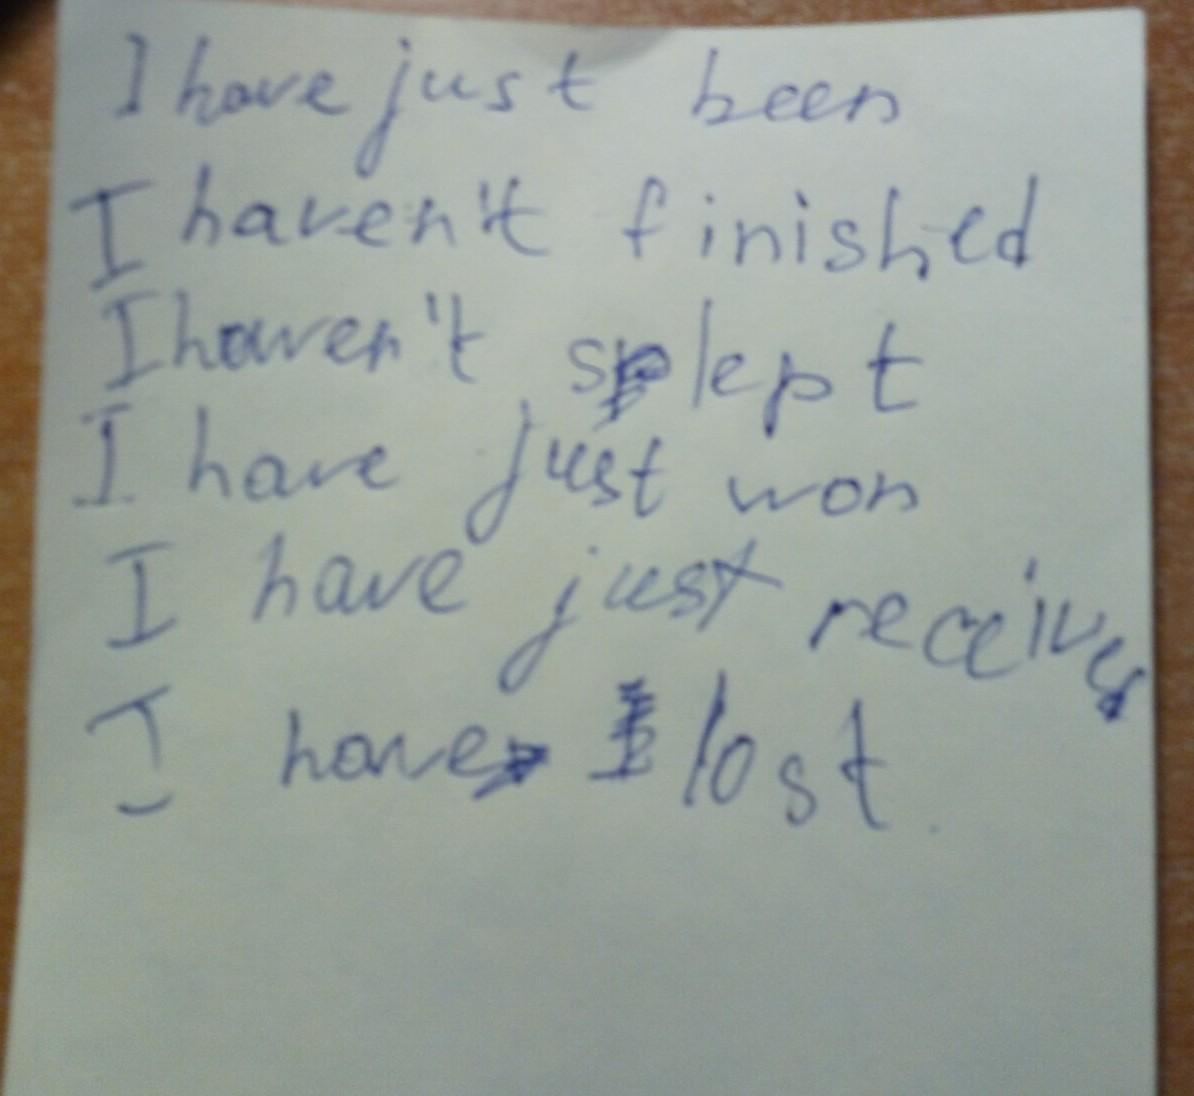 I have just been
I haven't finished
I haven't slept
I have just won
I have just received
I have lost.